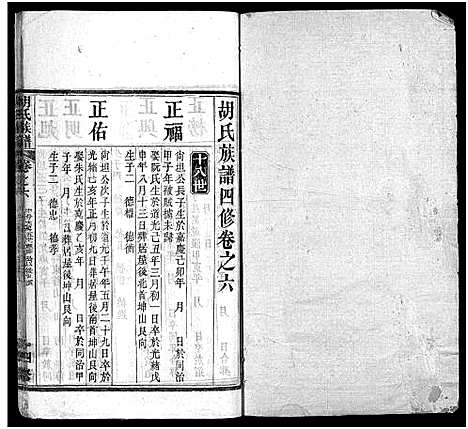 胡氏族譜四修卷之六
十八世
正福
尙坦公長子生於嘉慶己卯年 月 日於同治
甲子年被賊擄未歸
娶阮氏生於道光己丑年三月初一日卒於光緒戊
申年八月十三日葬居屋後北首坤山艮向
生子二 德 德衡
正佑
尙坦公次子生於道光壬午年五月二十九日卒於
光緒己亥年正月初九日葬居屋後南首坤山艮向
娶朱氏生於嘉慶乙亥年 月 日卒於同治甲
子年 月 日葬居屋後坤山艮向
生子二 德忠 德孝
胡氏族譜 卷之六